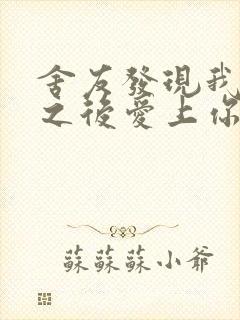 舍友發現我
之後愛上你
蘇蘇蘇小爺